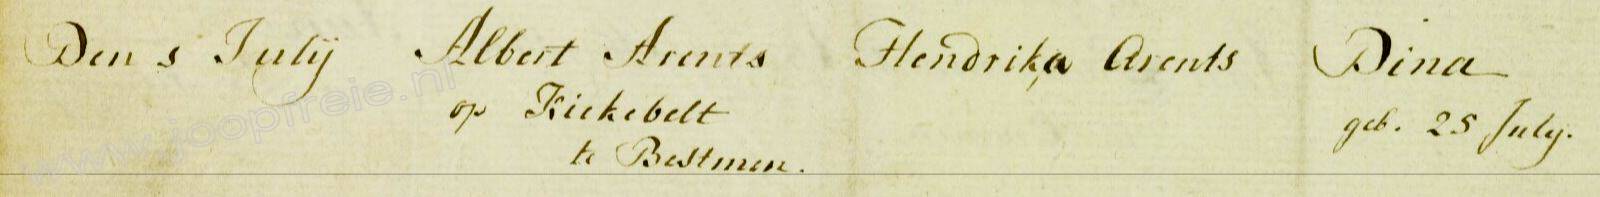 Den 5 Julij Albert Arents Hendrika Arents Dina
op Kiekebelt geb. 25 July.
te Bestmen.
www.joopfreie.nl